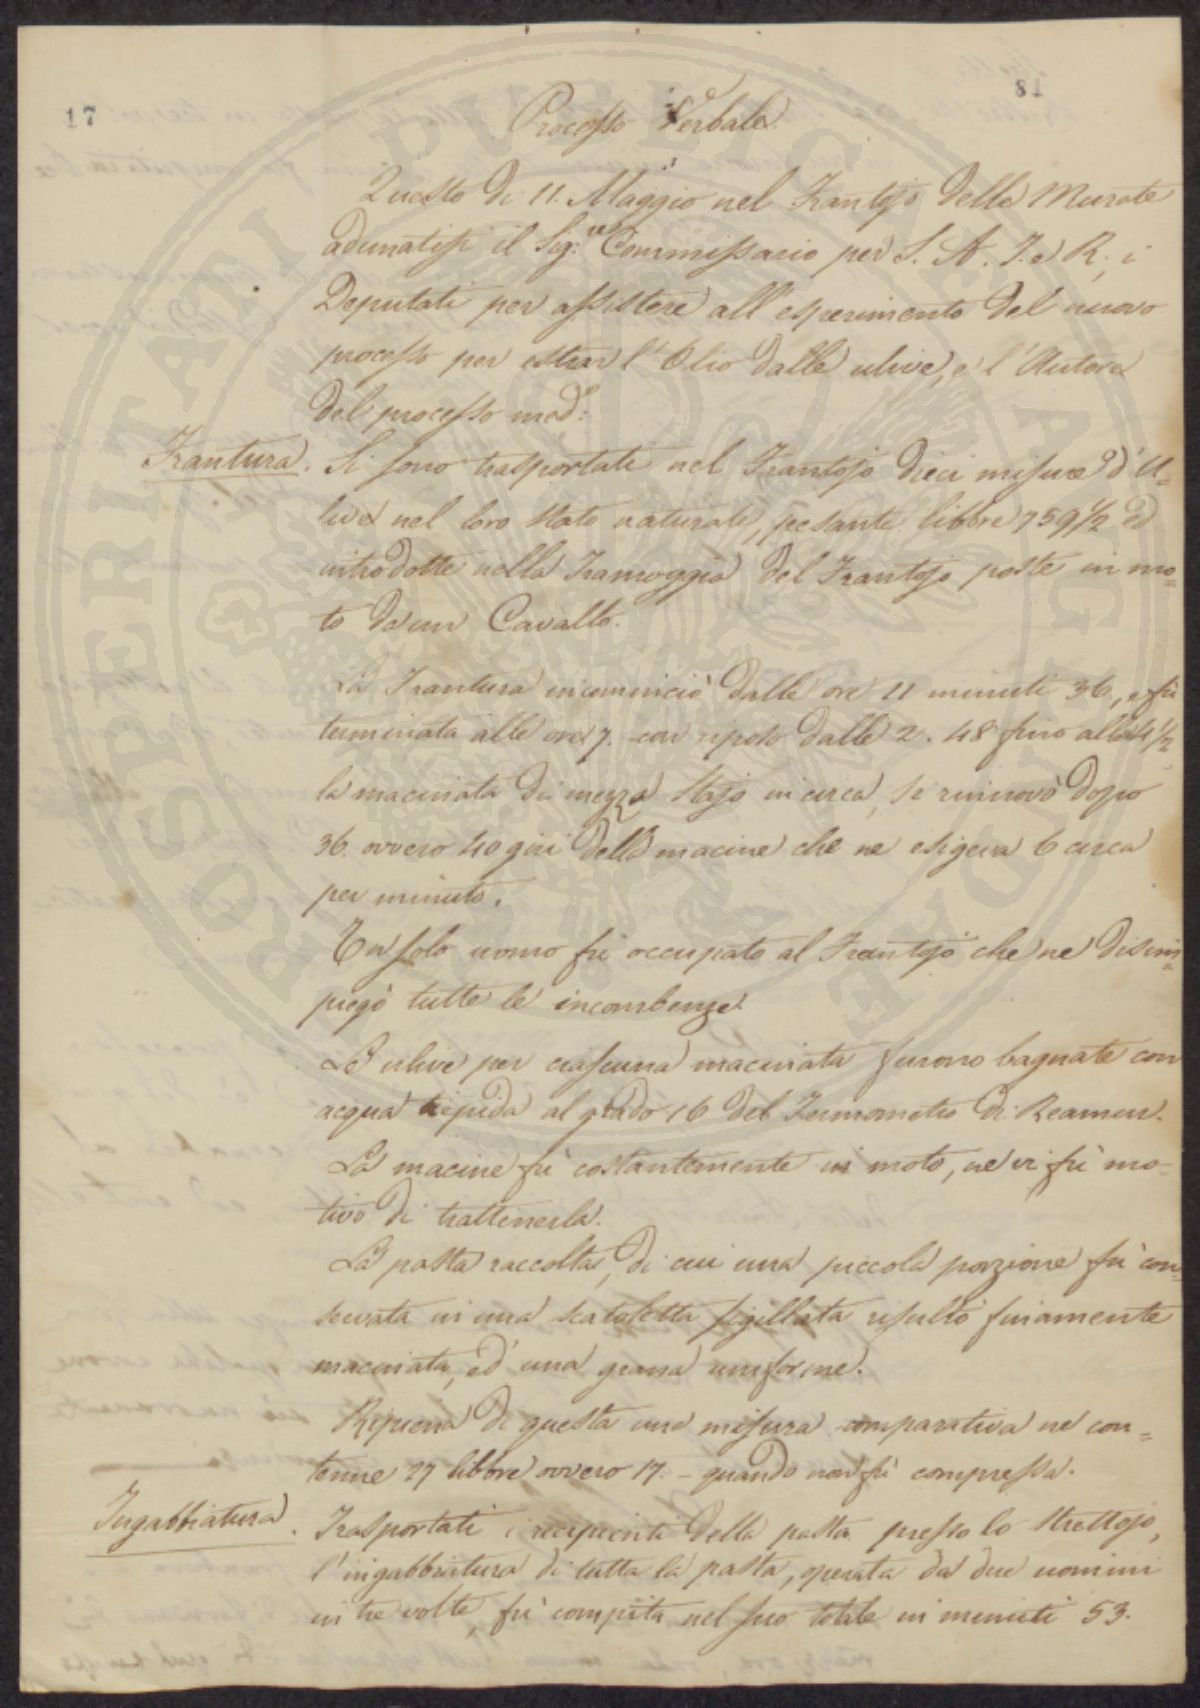 17
81
Processo Verbale
Questo dì 11. Maggio nel Frantojo delle Murate
adunatisi il Sig.r Commissario per S. A. I. e R., i
Deputati per assistere all'esperimento del nuovo
processo per estrar l'Olio dalle ulive, e l'Autore
del processo med:
Frantura. Si sono trasportate nel Frantojo dieci misure d'U=
live nel loro stato naturale, pesanti libbre 759 1/2 ed
introdotte nella Tramoggia del Frantojo poste in mo=
to da un Cavallo.
La Frantura incominciò dalle ore 11 minuti 36, e fù
terminata alle ore 7. con riposo dalle 2. 48 fino alle 4 1/2
la macinata di mezzo Stajo in circa, si rinnovò dopo
36. ovvero 40 giri della macine che ne esigeva 6 circa
per minuto.
Un solo uomo fù occupato al Frantojo che ne disim=
piegò tutte le incombenze.
Le ulive per ciascuna macinata furono bagnate con
acqua tiepida al grado 16 del Termometro di Reamur.
La macine fù costantemente in moto, ne vi fù mo=
tivo di trattenerla.
La pasta raccolta, di cui una piccola porzione fù con=
servata in una scatoletta sigillata risultò finamente
macinata, ed' una grana uniforme.
Ripiena di questa una misura comparativa ne con=
tenne 27 libbre ovvero 17. - quando non fù compressa.
Ingabbiatura. Trasportati i recipienti della pasta presso lo Strettojo,
l'ingabbiatura di tutta la pasta, operata da due uomini
in tre volte, fù compita nel suo totale in minuti 53.
PROSPERITATI PUBLICAE AUGENDAE